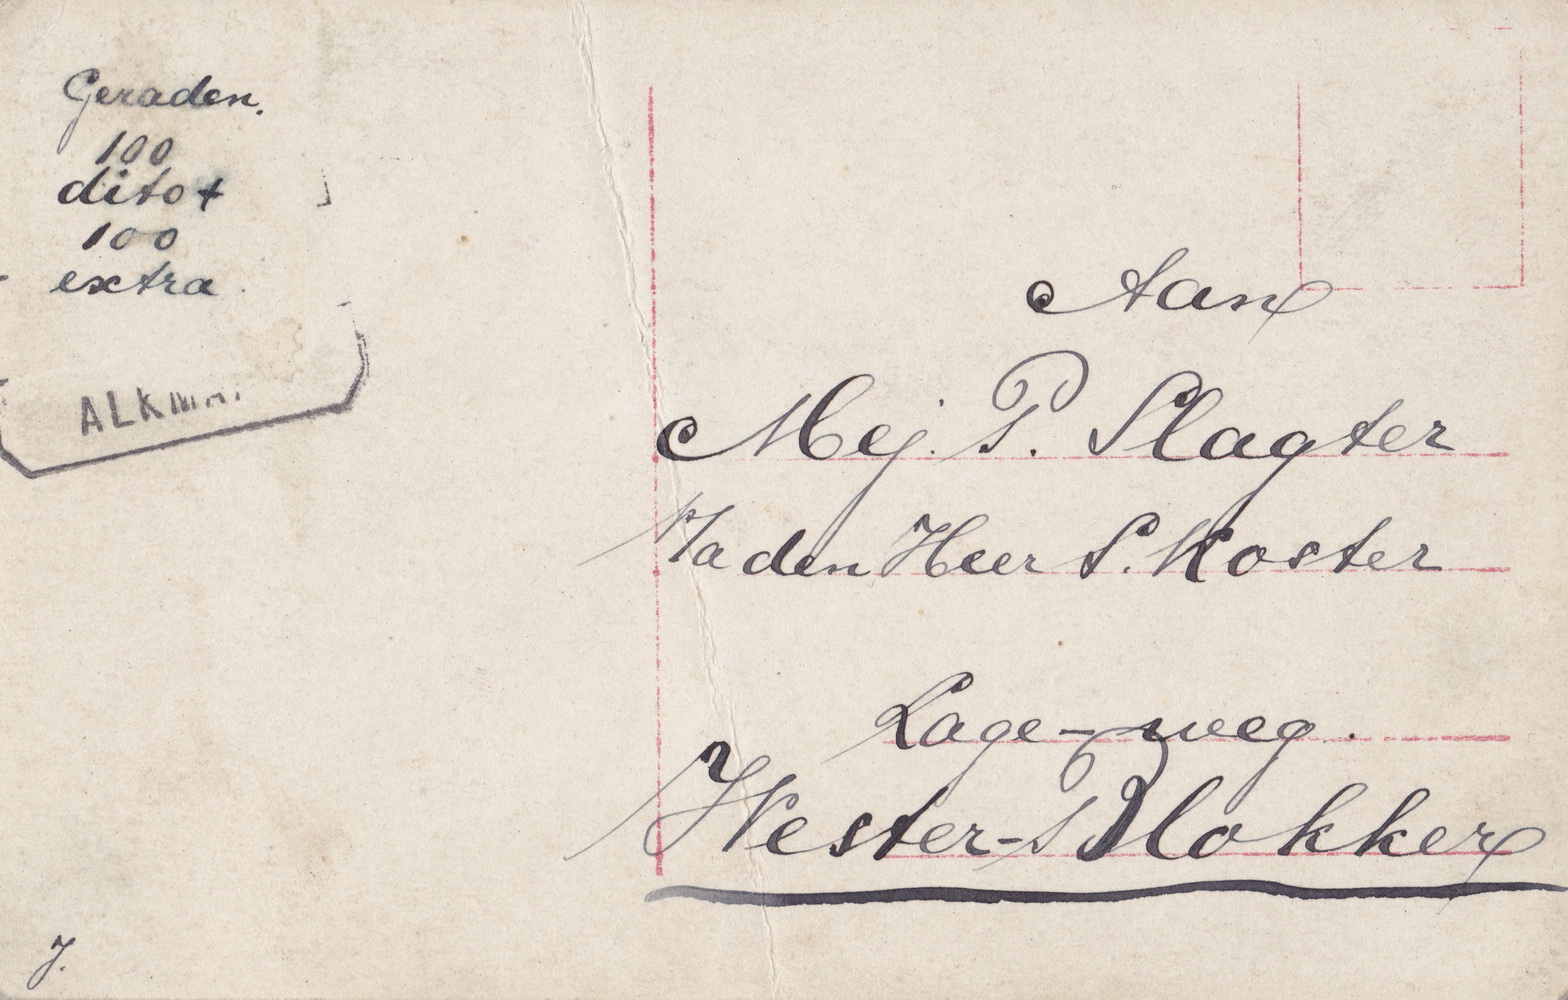 Geraden.
100
dito +
100
extra.
ALKMA
Aan
Mej. P. Slagter
p/a den Heer S. Koster
Lage-weg.
Wester-Blokker
J.